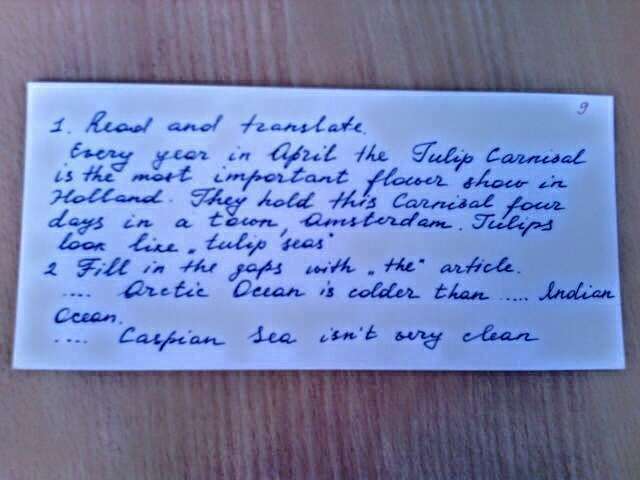 9
1. Read and translate.
Every year in April the Tulip Carnival
is the most important flower show in
Holland. They hold this Carnival four
days in a town, Amsterdam. Tulips
look like „tulip seas"
2 Fill in the gaps with „the" article.
.... Arctic Ocean is colder than ..... Indian
Ocean.
.... Caspian Sea isn't very clean